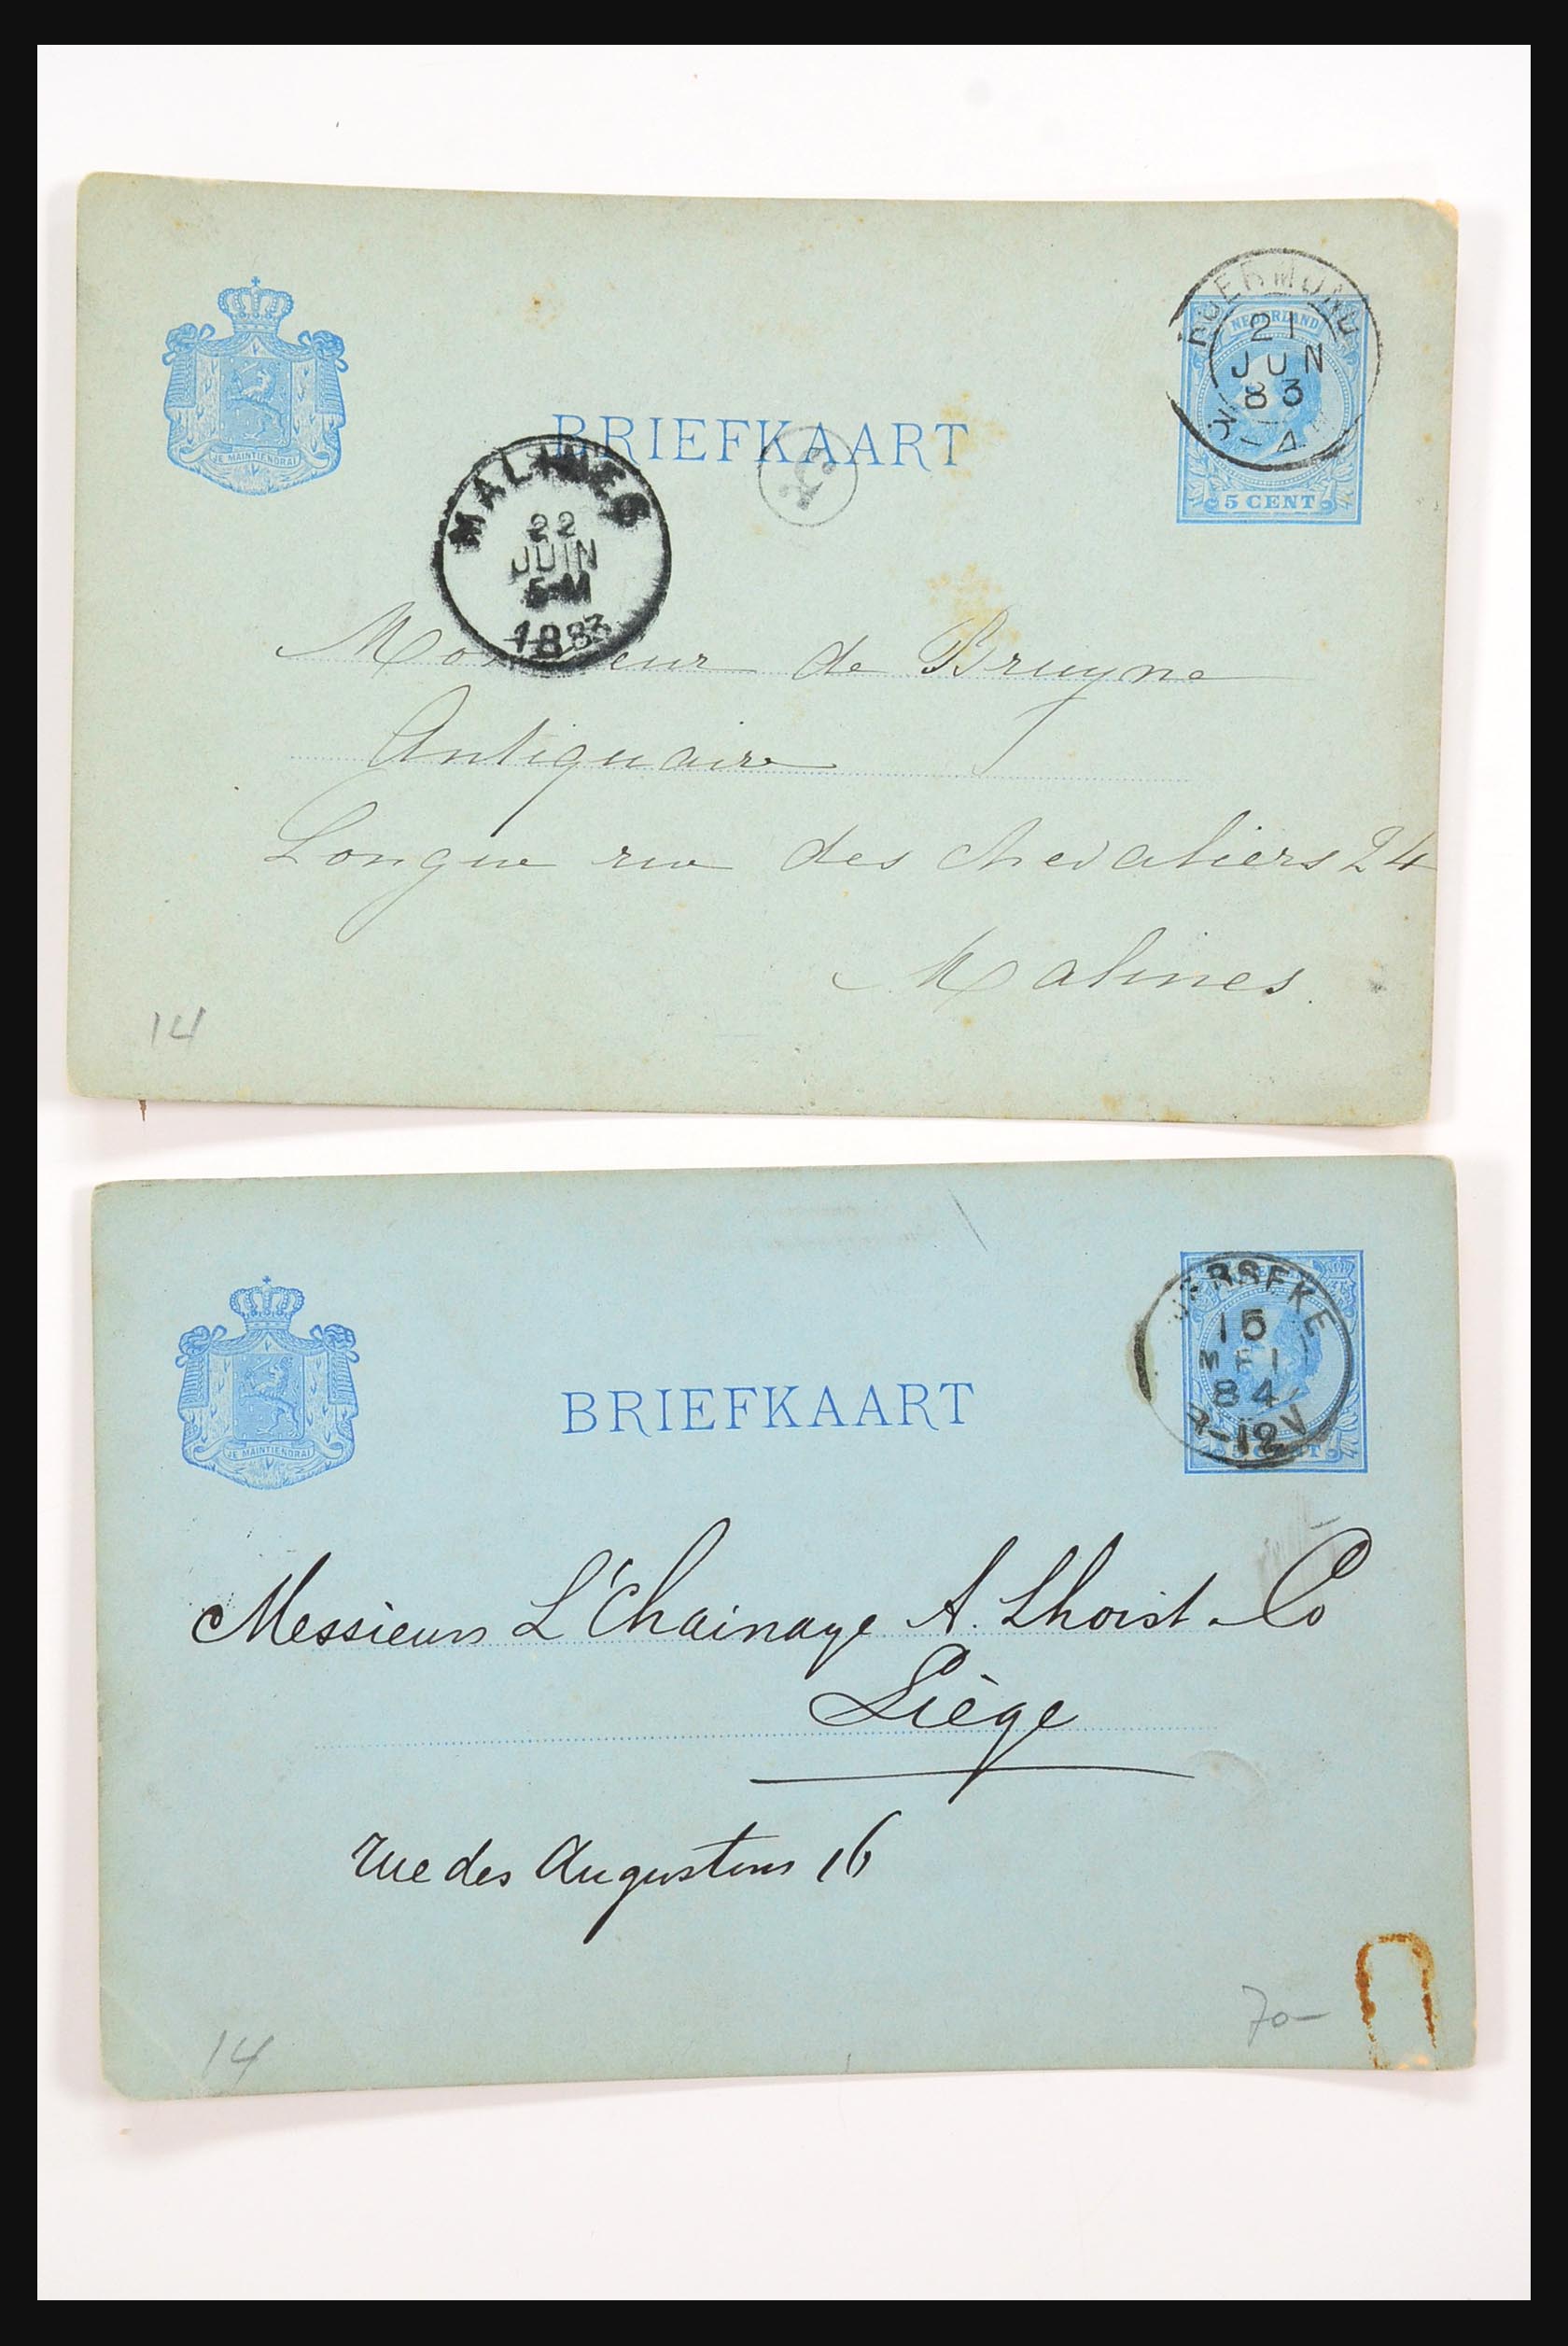 ROERMOND
NEDERLAND
21
JUN
83
5 CENT
JE MAINTIENDRAI
BRIEFKAART
MALINES
22
JUIN
5-M
1883
Monsieur de Bruyne
Antiquaire
Longue rue des chevaliers 24
Malines.
14
JERSEKE
15
MEI
84
-12V
5 CENT
JE MAINTIENDRAI
BRIEFKAART
Messieurs L'Chainaye A. Lhoist & Co
Liège
rue des Augustins 16
70-
14